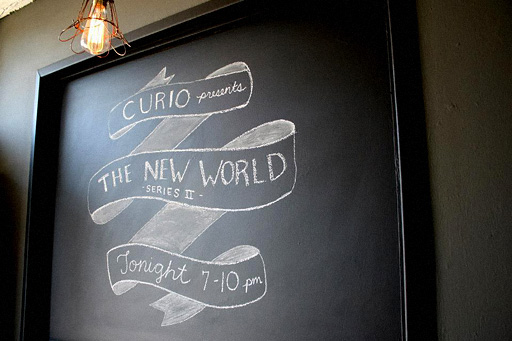 CURIO presents
THE NEW WORLD
-SERIES II-
Tonight 7-10 pm